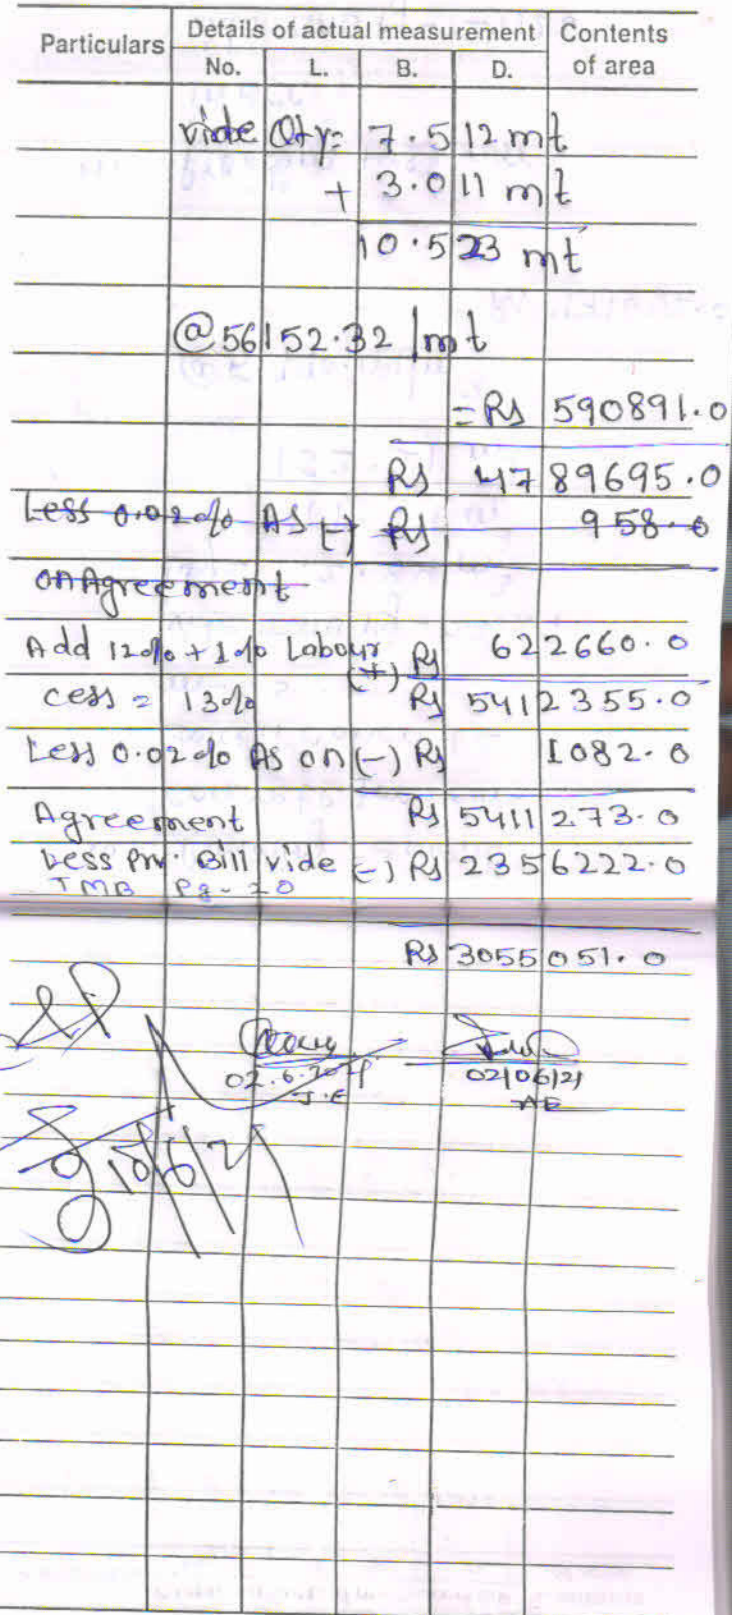 Particulars Details of actual measurement Contents of area
No. L. B. D.
vide Qty= 7.512 mt
+ 3.011 mt
10.523 mt
@56152.32/mt
=Rs 590891.0
Rs 4789695.0
Less 0.02% AS (-) Rs 958.0
on Agreement
Add 12% + 1% Labour (+) Rs 622660.0
cess = 13% Rs 5412355.0
Less 0.02% AS on (-) Rs 1082.0
Agreement Rs 5411273.0
Less Prv. Bill vide (-) Rs 2356222.0
TMB Pg-20
Rs 3055051.0
02.6.2021 02/06/21
J.E AE